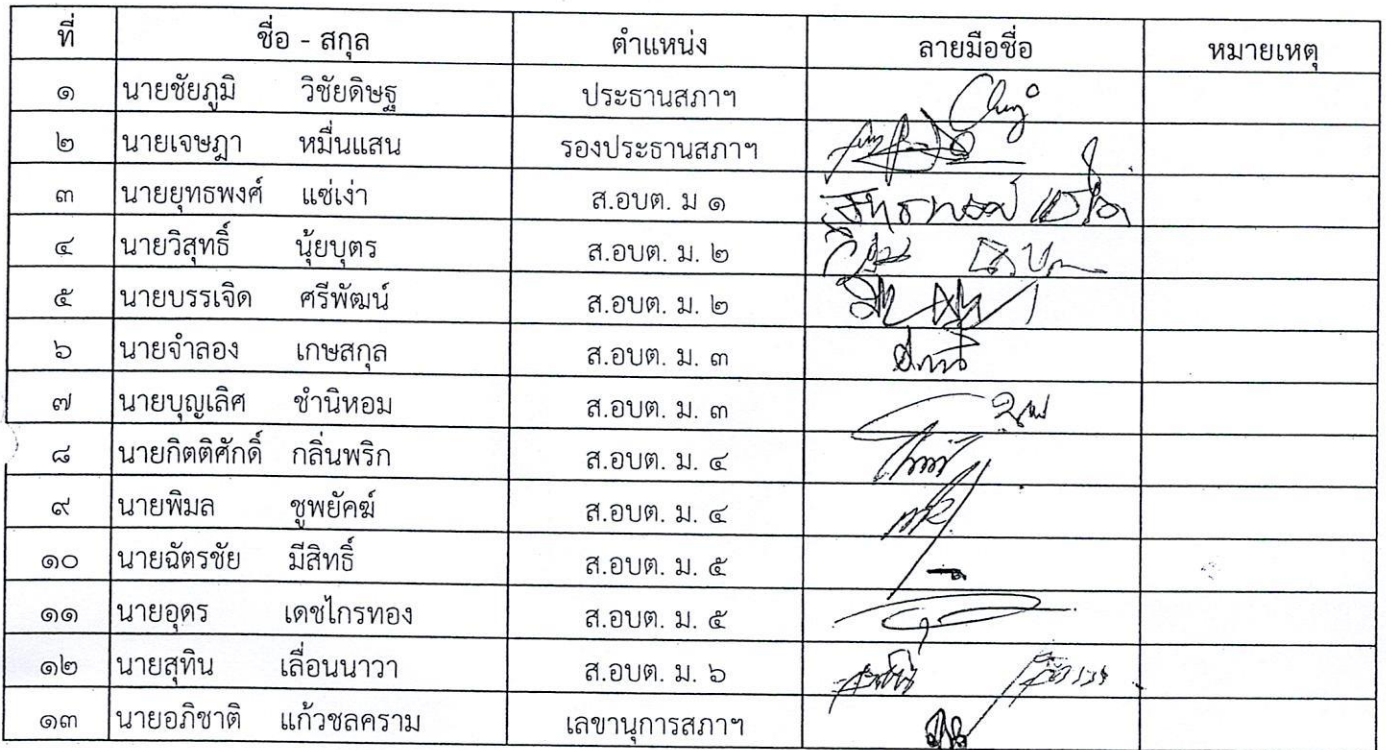 ที่ ชื่อ - สกุล ตำแหน่ง ลายมือชื่อ หมายเหตุ
๑ นายชัยภูมิ วิชัยดิษฐ ประธานสภาฯ
๒ นายเจษฎา หมื่นแสน รองประธานสภาฯ
๓ นายยุทธพงศ์ แซ่เง่า ส.อบต. ม ๑
๔ นายวิสุทธิ์ นุ้ยบุตร ส.อบต. ม. ๒
๕ นายบรรเจิด ศรีพัฒน์ ส.อบต. ม. ๒
๖ นายจำลอง เกษสกุล ส.อบต. ม. ๓
๗ นายบุญเลิศ ชำนิหอม ส.อบต. ม. ๓
๘ นายกิตติศักดิ์ กลิ่นพริก ส.อบต. ม. ๔
๙ นายพิมล ชูพยัคฆ์ ส.อบต. ม. ๔
๑๐ นายฉัตรชัย มีสิทธิ์ ส.อบต. ม. ๕
๑๑ นายอุดร เดชไกรทอง ส.อบต. ม. ๕
๑๒ นายสุทิน เลื่อนนาวา ส.อบต. ม. ๖
๑๓ นายอภิชาติ แก้วชลคราม เลขานุการสภาฯ